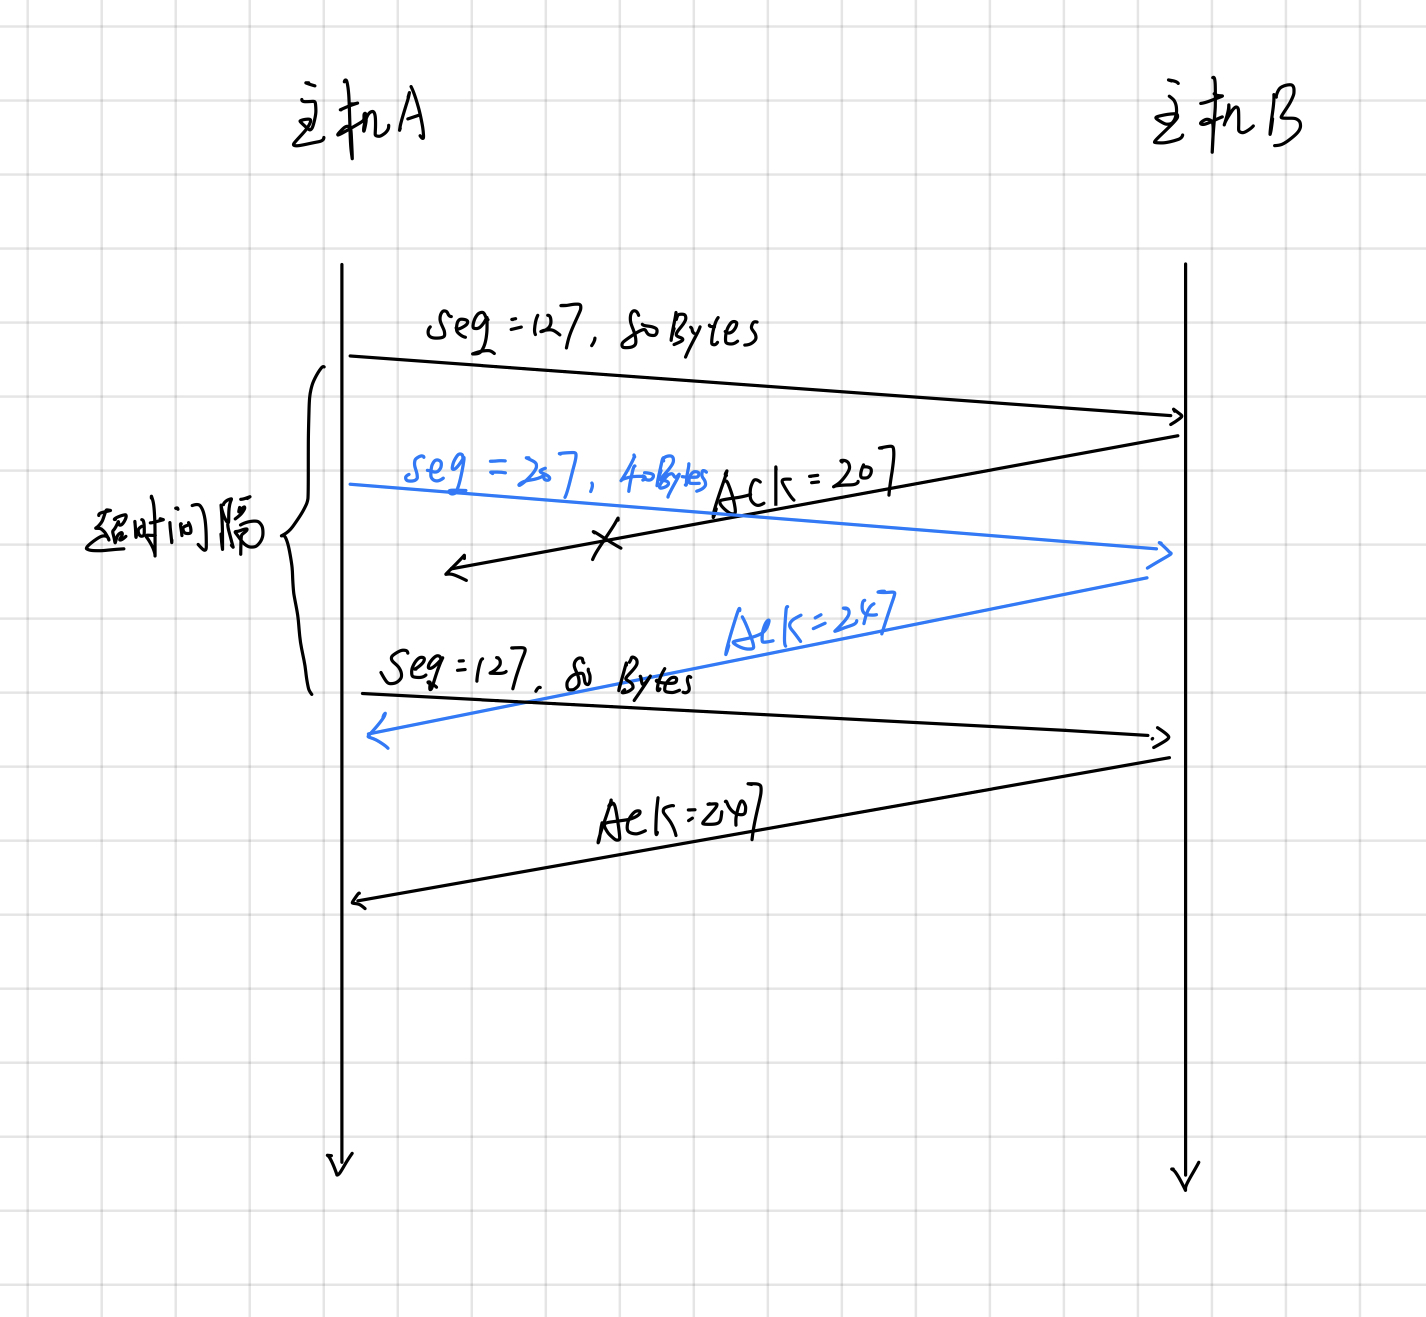 主机A
主机B
Seq=127, 80Bytes
Seq=207, 40Bytes
Ack=207
超时间隔
Ack=247
Seq=127, 80 Bytes
Ack=247